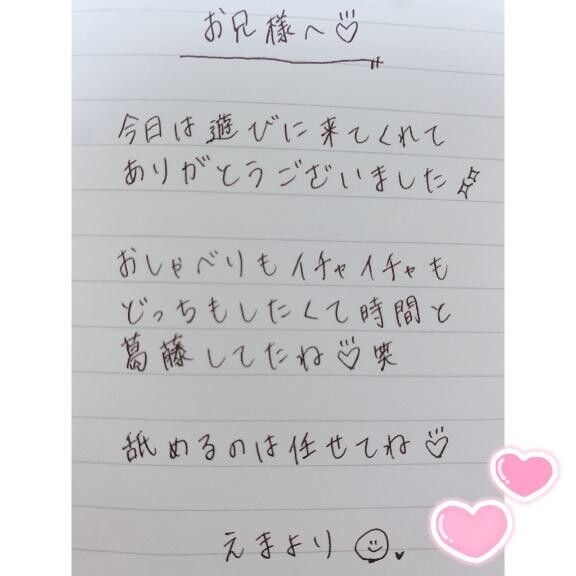 お兄様へ♡
今日は遊びに来てくれて
ありがとうございました
おしゃべりもイチャイチャも
どっちもしたくて時間と
葛藤してたね♡笑
舐めるのは任せてね♡
えまより